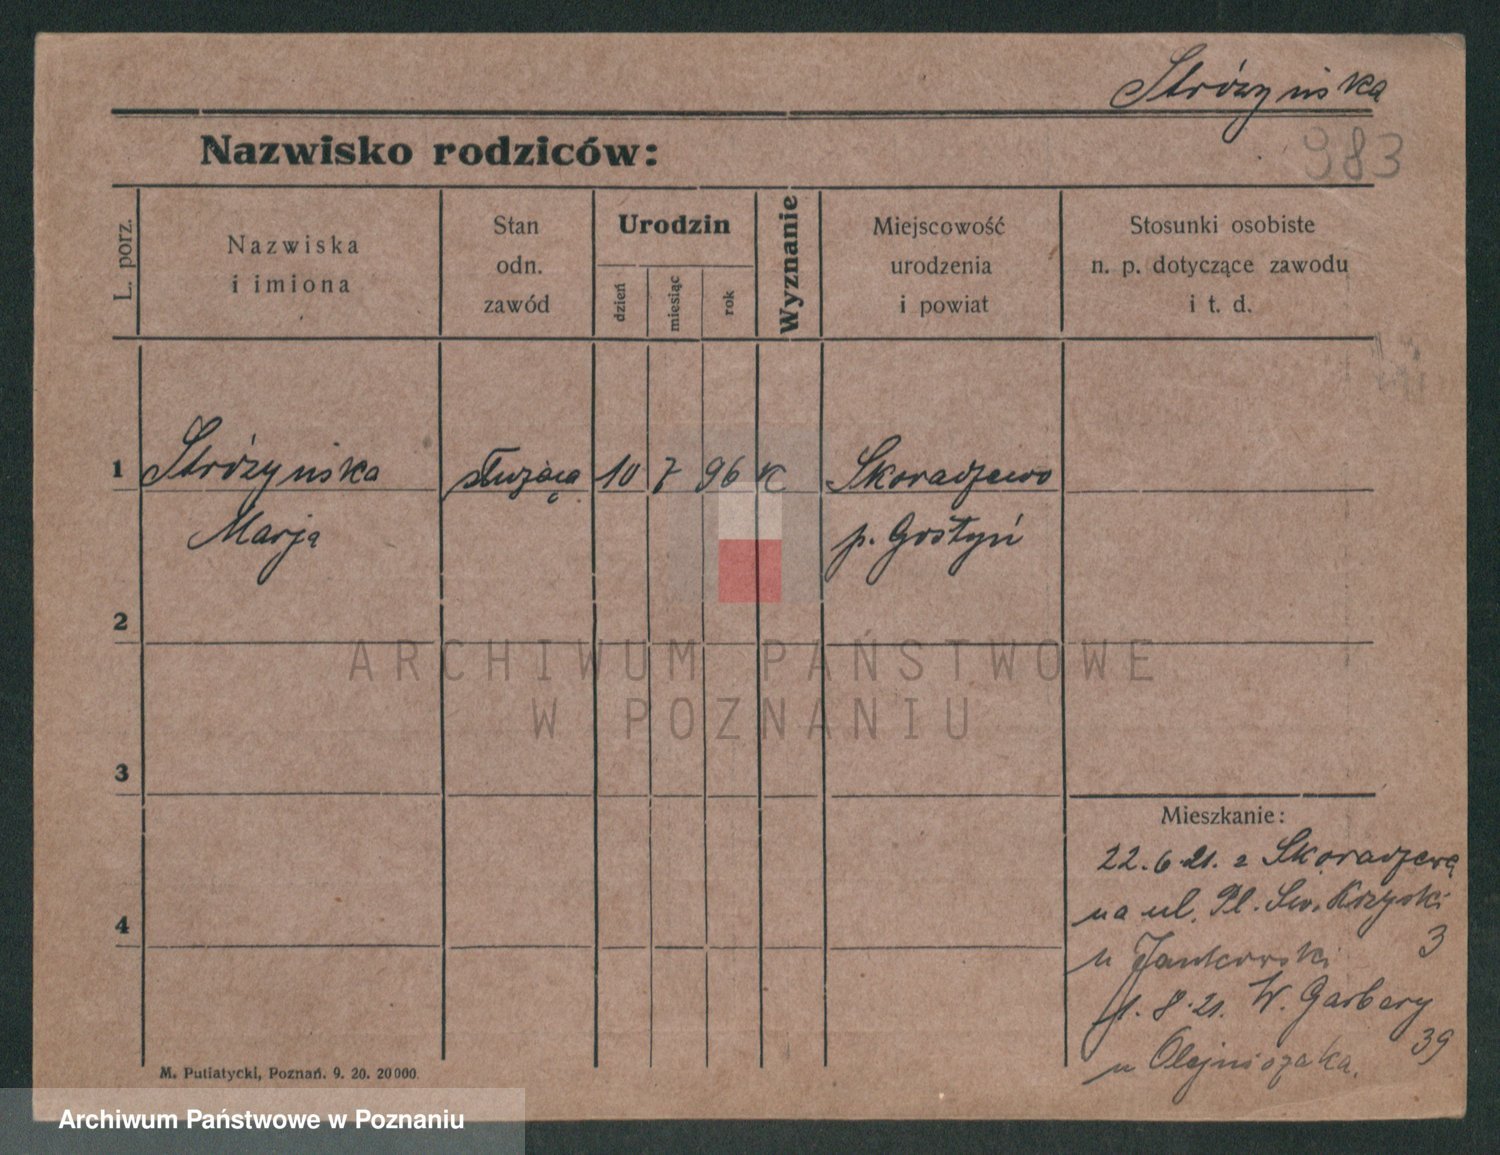 Stróżyńska
Nazwisko rodziców:
983
L. porz.
Nazwiska
i imiona
Stan
odn.
zawód
Urodzin
dzień
miesiąc
rok
Wyznanie
Miejscowość
urodzenia
i powiat
Stosunki osobiste
n. p. dotyczące zawodu
i t. d.
1 Stróżyńska służąca 10 7 96 K Skoradzewo
Marja p. Gostyń
2
ARCHIWUM PAŃSTWOWE
W POZNANIU
3
Mieszkanie:
22.6.21. z Skoradzewa
na ul. Pl. Św. Krzyski
3
u Jankowski
1.8.21. W. Garbary
39
u Olejniczaka.
4
M. Putiatycki, Poznań. 9. 20. 20000.
Archiwum Państwowe w Poznaniu